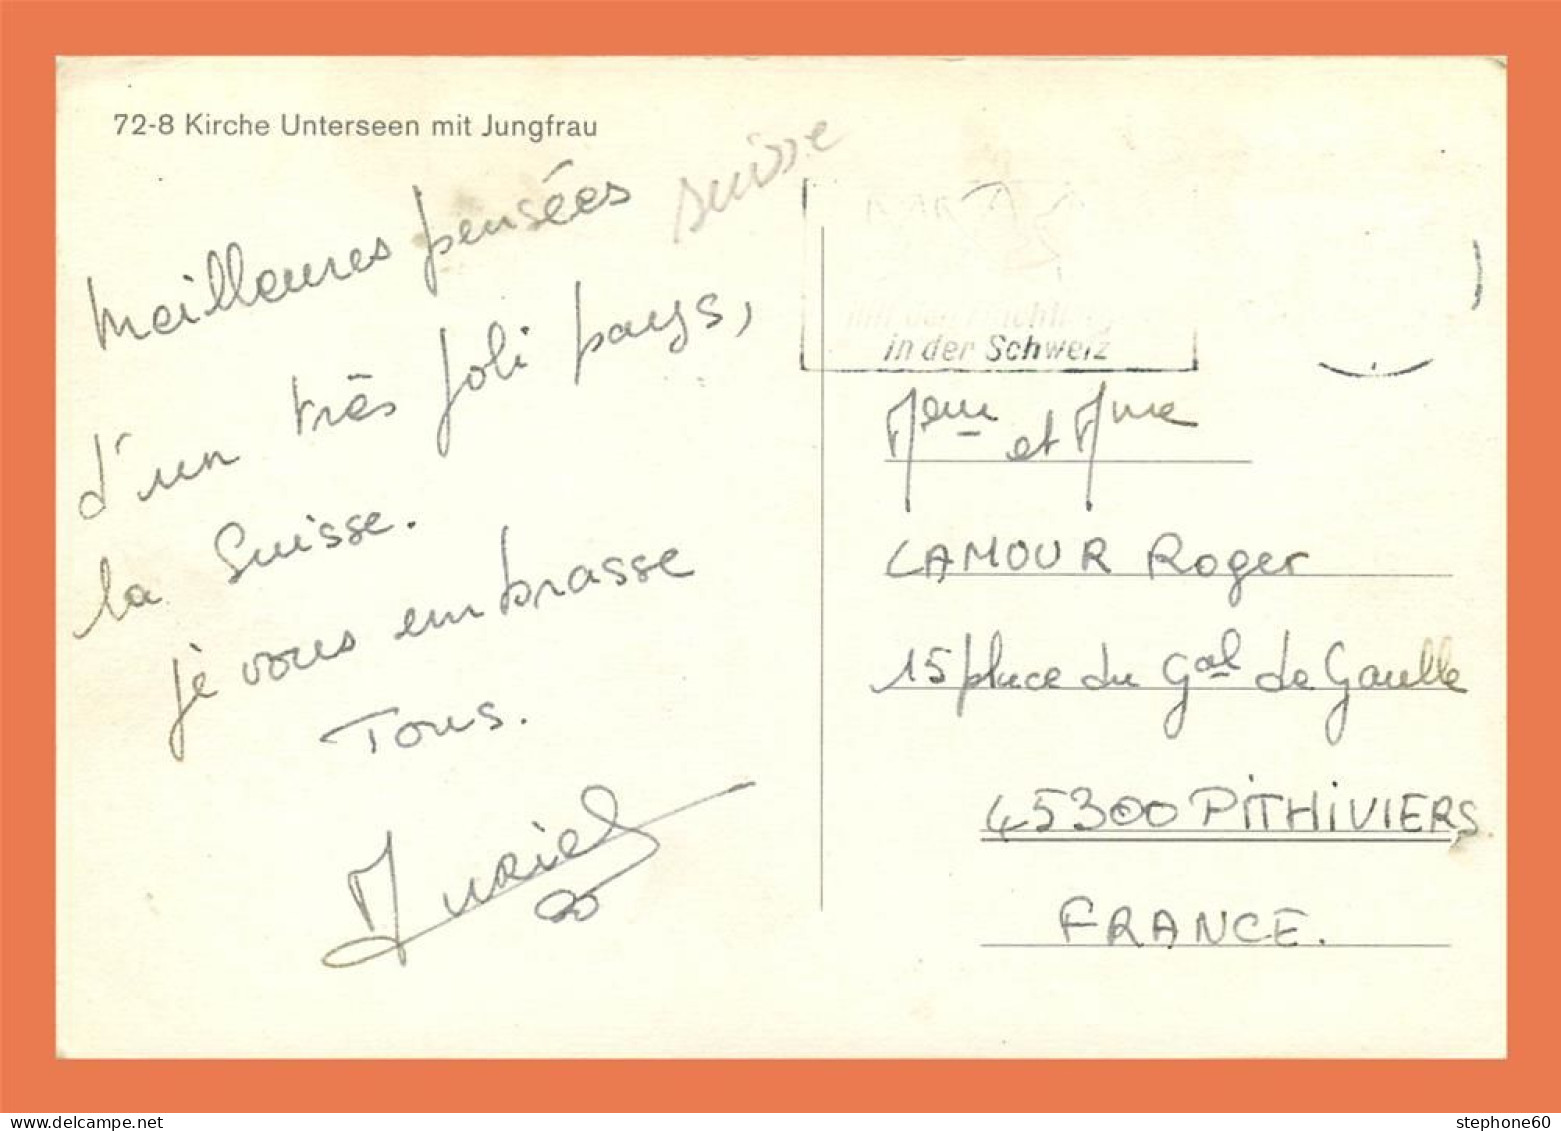 72-8 Kirche Unterseen mit Jungfrau
suisse
Meilleures pensées
d'un très joli pays,
la Suisse.
je vous embrasse
Tous.
Muriel
in der Schweiz
Meur et Mme
LAMOUR Roger
15 place du Gal de Gaulle
45300 PITHIVIERS
FRANCE.
stephone60